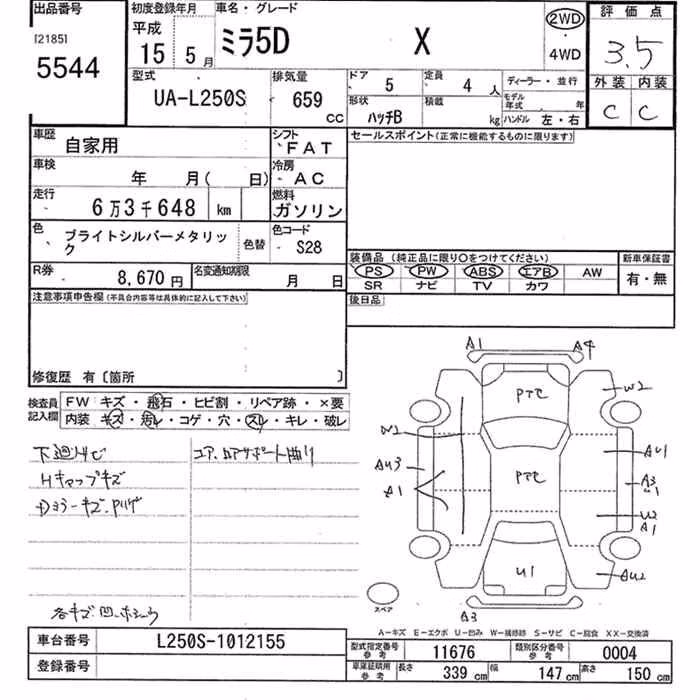 出品番号
[2185]
5544
初度登録年月
平成
15 5月
車名・グレード
ミラ5D X
2WD
・
4WD
評価点
3.5
外装 内装
C C
型式
UA-L250S
排気量
659
CC
ドア 5
定員 4 人
形状 ハッチB
積載 kg
ディーラー・並行
モデル年式 年
ハンドル 左・右
車歴 自家用
シフト FAT
車検 年 月( 日)
冷房 AC
走行 6万3千648 km
燃料 ガソリン
色 ブライトシルバーメタリック
色替
色コード S28
R券 8,670円
名変通知期限 月 日
セールスポイント(正常に機能するものに限ります)
装備品(純正品に限り○をつけてください)
PS PW ABS エアB AW
SR ナビ TV カワ
新車保証書
有・無
後日品
注意事項申告欄(不具合内容等は具体的に記入して下さい)
修復歴 有〔箇所 〕
検査員記入欄
FW キズ・飛石・ヒビ割・リペア跡・×要
内装 キズ・汚レ・コゲ・穴・スレ・キレ・破レ
下廻サビ
Hキャップキズ
Dミラーキズ.
コア.コアサポート曲り
各キズ凹.
A1 A4
PTC
W2
W2
AU3
A1
AU1
A3
U2
A1
PTC
U1
AU2
スペア
A3
A-キズ E-エクボ U-凹み W-補修跡 S-サビ C-腐食 XX-交換済
車台番号 L250S-1012155
登録番号
型式指定番号 参考 11676
類別区分番号 参考 0004
車庫証明用 参考 長さ 339 cm 幅 147 cm 高さ 150 cm